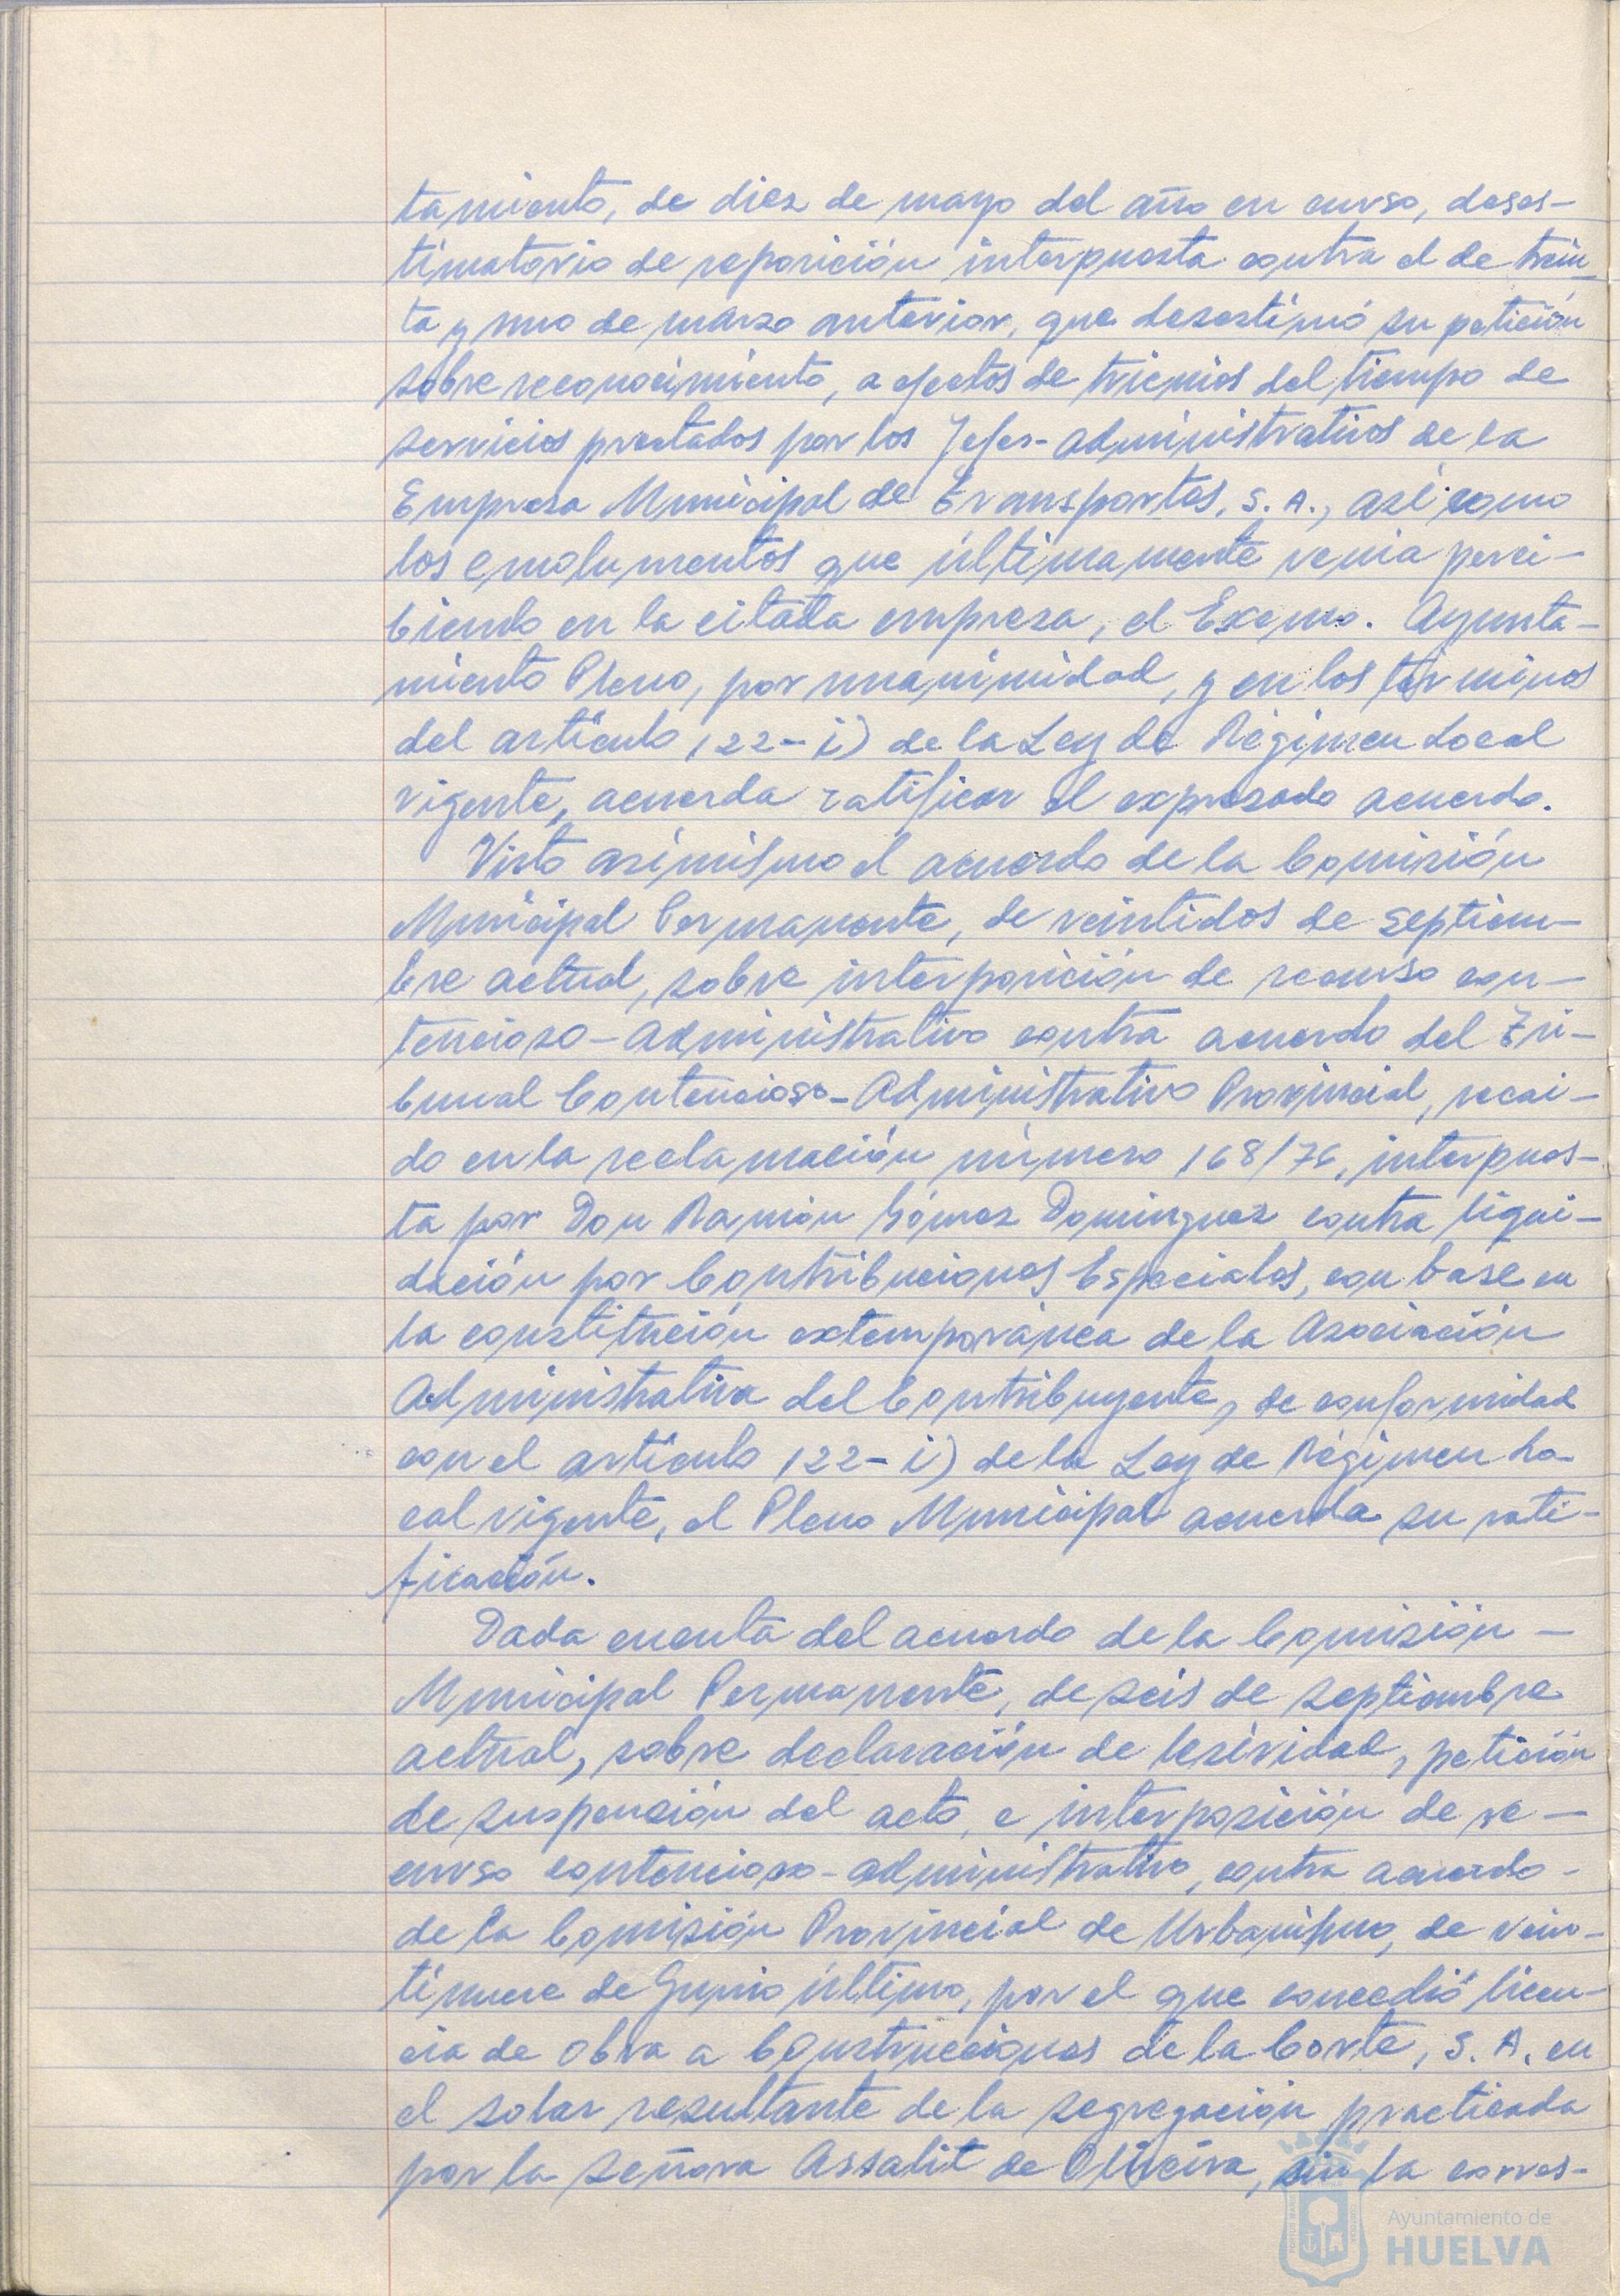 tamiento, de diez de mayo del año en curso, deses-
timatorio de reposición interpuesta contra el de trein
ta y uno de marzo anterior, que desestimó su petición
sobre reconocimiento, a efectos de trienios del tiempo de
servicios prestados por los Jefes-administrativos de la
Empresa Municipal de Transportes, S. A., así como
los emolumentos que últimamente venia perci-
biendo en la citada empresa, el Excmo. Ayunta-
miento Pleno, por unanimidad, y en los términos
del artículo 122-i) de la Ley de Régimen Local
vigente, acuerda ratificar el expresado acuerdo.
Visto asímismo el acuerdo de la Comisión
Municipal Permanente, de veintidos de septiem-
bre actual, sobre interposición de recurso con-
tencioso-administrativo contra acuerdo del Tri-
bunal Contencioso-Administrativo Provincial, recai-
do en la reclamación número 168/76, interpues-
ta por Don Ramón Gómez Dominguez contra liqui-
dación por Contribuciones Especiales, con base en
la constitución extemporánea de la Asociación
Administrativa del Contribuyente, de conformidad
con el artículo 122-i) de la Ley de Régimen Lo-
cal vigente, el Pleno Municipal acuerda su rati-
ficación.
Dada cuenta del acuerdo de la Comisión -
Municipal Permanente, de seis de septiembre
actual, sobre declaración de lesividad, petición
de suspensión del acto, e interposición de re-
curso contencioso-administrativo, contra acuerdo -
de la Comisión Provincial de Urbanismo, de vein-
tinueve de Junio último, por el que concedió licen-
cia de obra a Construcciones de la Corte, S. A. en
el solar resultante de la segregación practicada
por la señora Assalit de Oliveira, sin la corres-
Ayuntamiento de
HUELVA